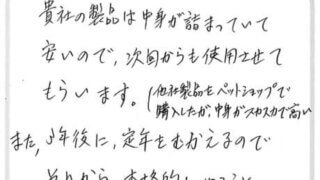 貴社の製品は中身が詰まっていて
安いので、次回からも使用させて
もらいます。(他社製品をペットショップで
購入したが、中身がスカスカで高い
また、5年後に、定年をむかえるので
それから、本格的に